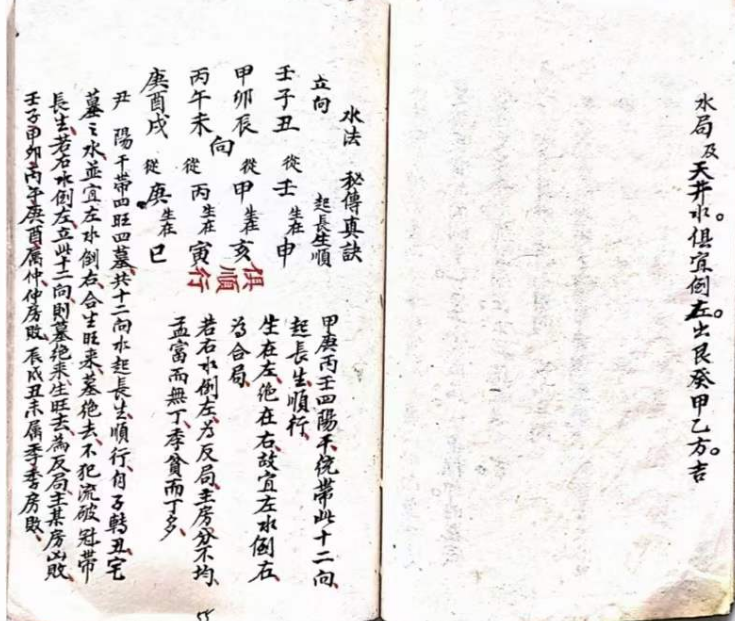 水局及天井水。俱宜倒左。出艮癸甲乙方。吉
水法 秘傳真訣
立向 起長生順
壬子丑 從壬 生在申
甲卯辰 從甲 生在亥
向
俱順行
丙午未 從丙 生在寅
庚酉戌 從庚 生在巳
甲庚丙壬四陽干統帶此十二向
起長生順行、
生在左、絶在右、故宜左水倒右
為合局、
若右水倒左、為反局、主房分不均、
孟富而無丁、季貧而丁多、
尹 陽干帶四旺四墓、共十二向水起長生順行、自子轉丑、宅
墓之水、並宜左水倒右、合生旺来、墓絶去、不犯流破冠帶
長生、若右水倒左、立此十二向、則墓絶来、生旺去、為反局、主某房凶敗
壬子甲卯丙午庚酉、属仲、仲房敗、辰戌丑未、属季、季房敗、